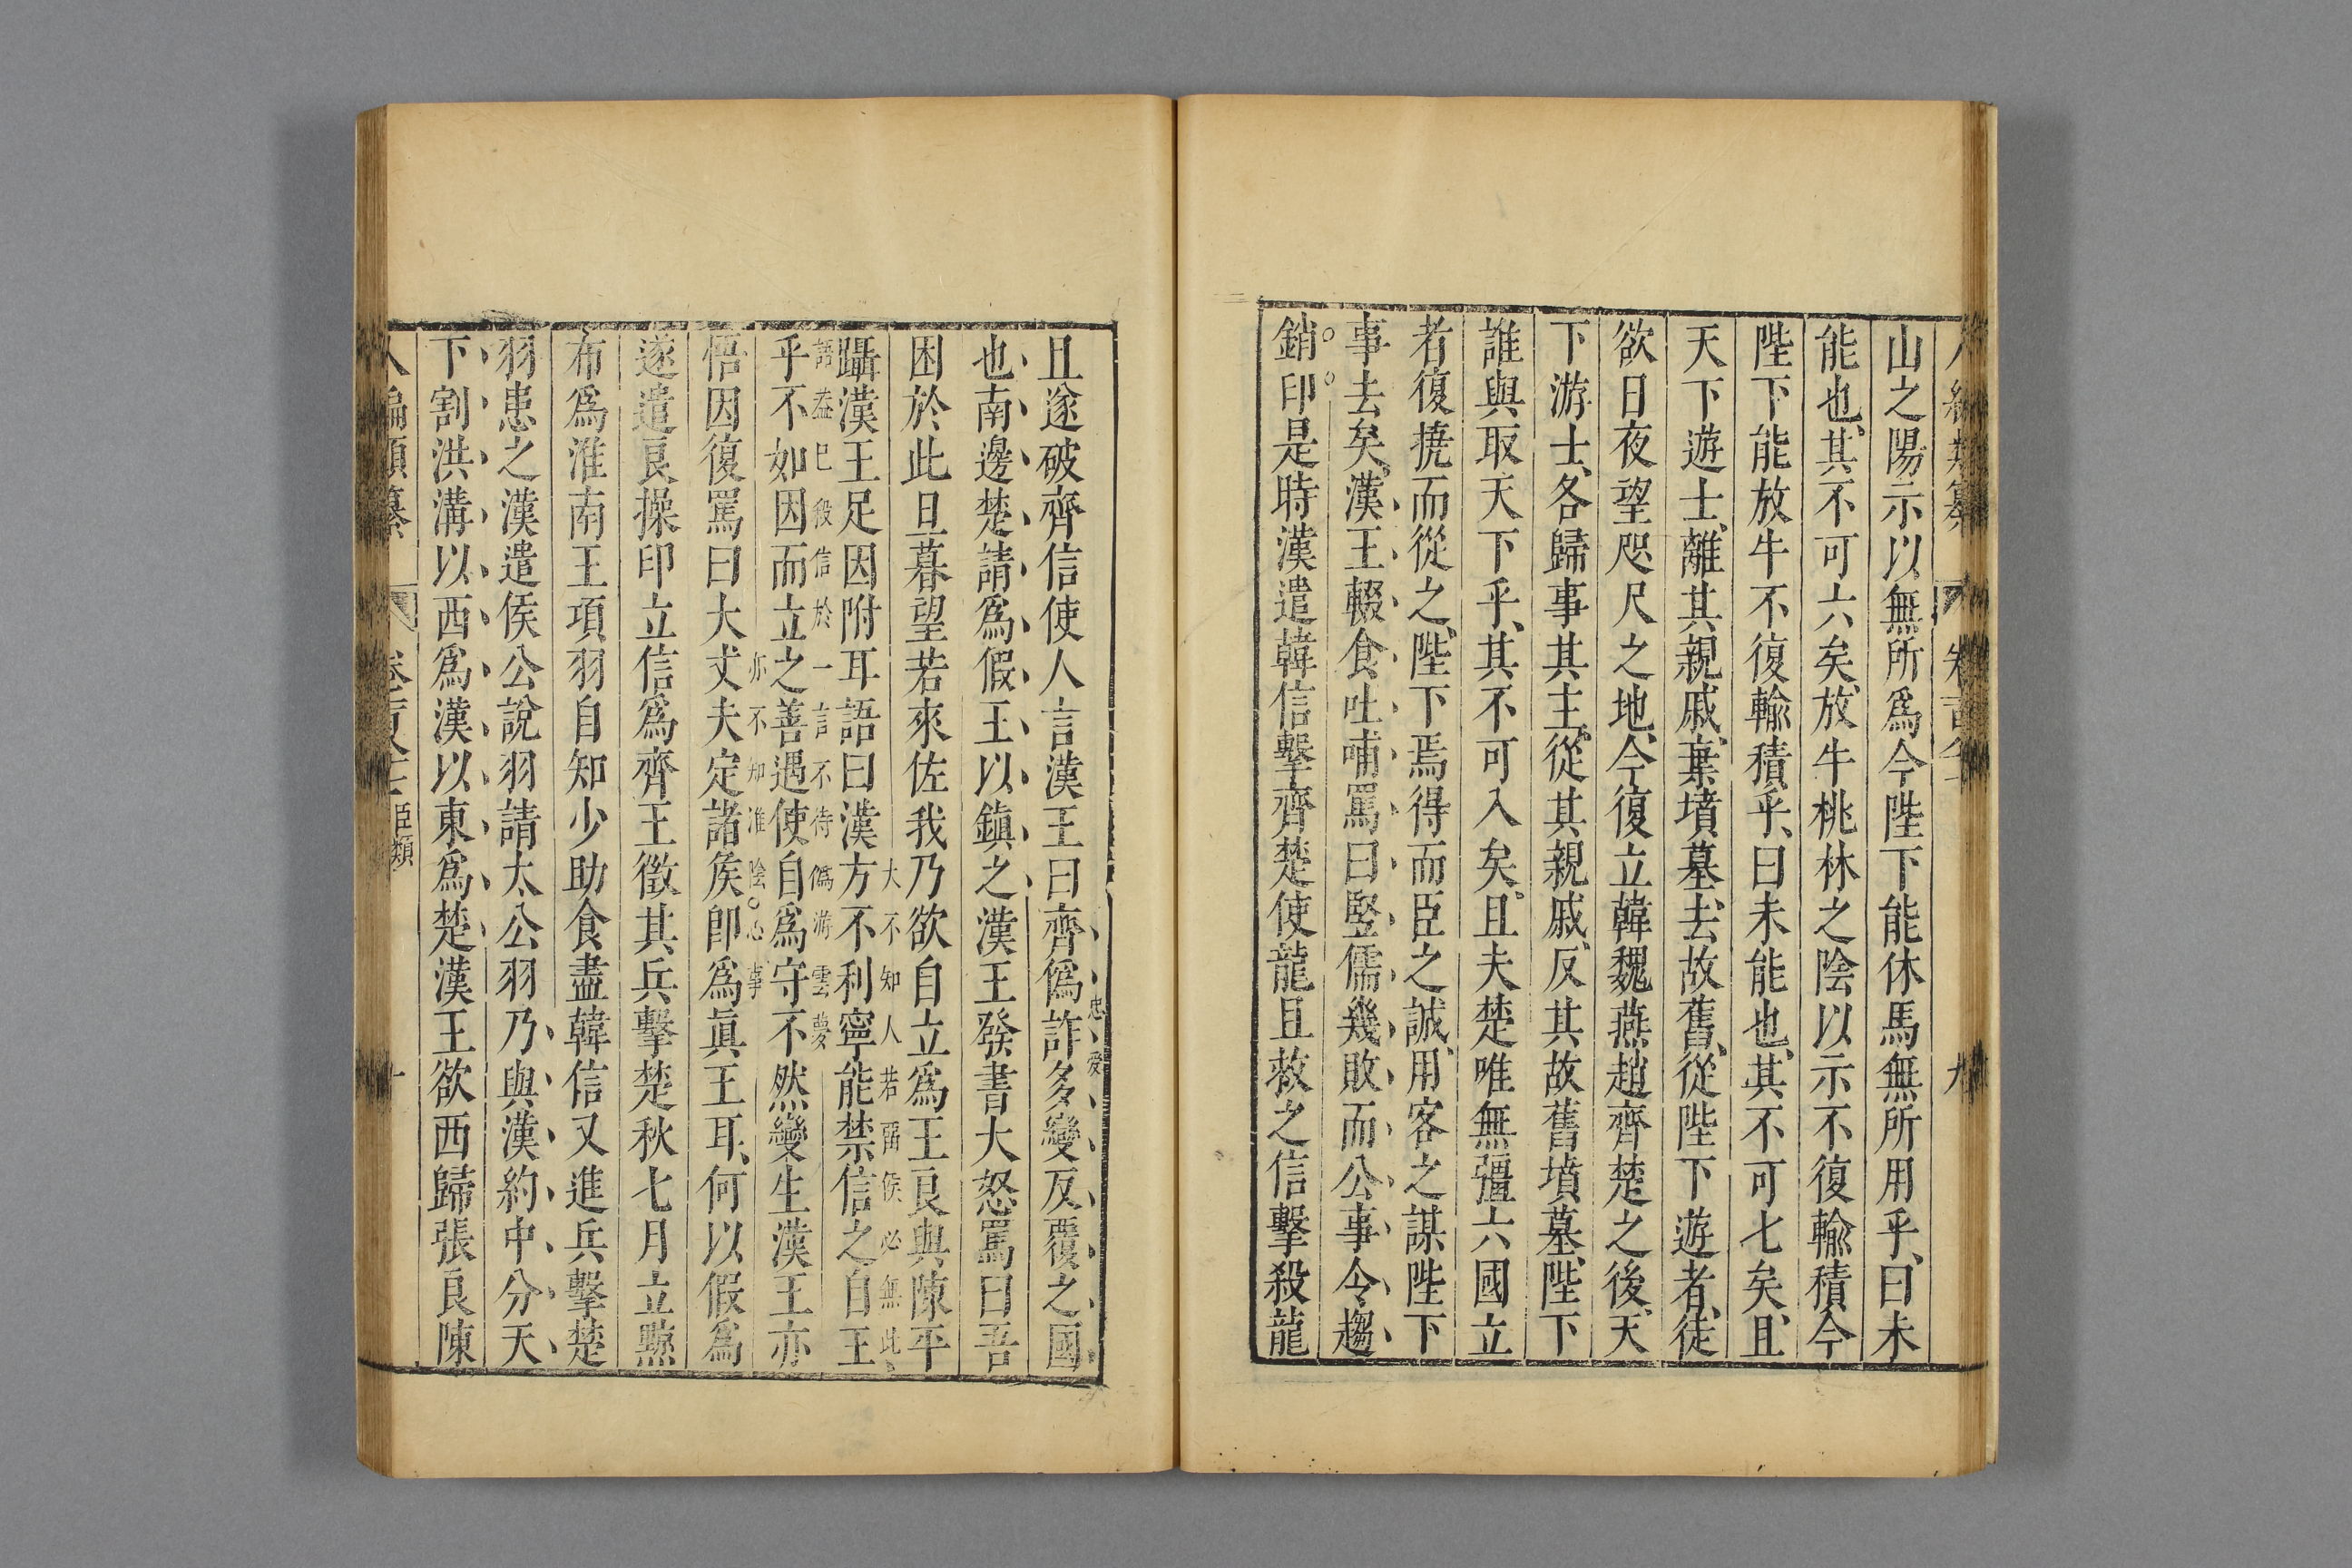 山之陽示以無所爲今陛下能休馬無所用乎曰未
能也其不可六矣放牛桃林之陰以示不復輸積今
陛下能放牛不復輸積乎曰未能也其不可七矣且
天下遊士離其親戚棄墳墓去故舊從陛下遊者徒
欲日夜望咫尺之地今復立韓魏燕趙齊楚之後天
下游士各歸事其主從其親戚反其故舊墳墓陛下
誰與取天下乎其不可八矣且夫楚唯無彊六國立
者復撓而從之陛下焉得而臣之誠用客之謀陛下
事去矣漢王輟食吐哺罵曰竪儒幾敗而公事令趨
銷印是時漢遣韓信擊齊楚使龍且救之信擊殺龍
且遂破齊信使人言漢王曰齊僞詐多變反覆之國
也南邊楚請爲假王以鎮之漢王發書大怒罵曰吾
困於此旦暮望若來佐我乃欲自立爲王良與陳平
大不知人若酈侯必無此
躡漢王足因附耳語曰漢方不利寧能禁信之自王
語葢已殺信於一言不待僞游雲夢
乎不如因而立之善遇使自爲守不然變生漢王亦
亦不知淮陰心事
悟因復罵曰大丈夫定諸矦卽爲眞王耳何以假爲
遂遣良操印立信爲齊王徵其兵擊楚秋七月立黥
布爲淮南王項羽自知少助食盡韓信又進兵擊楚
羽患之漢遣侯公說羽請太公羽乃與漢約中分天
下割洪溝以西爲漢以東爲楚漢王欲西歸張良陳
臣類